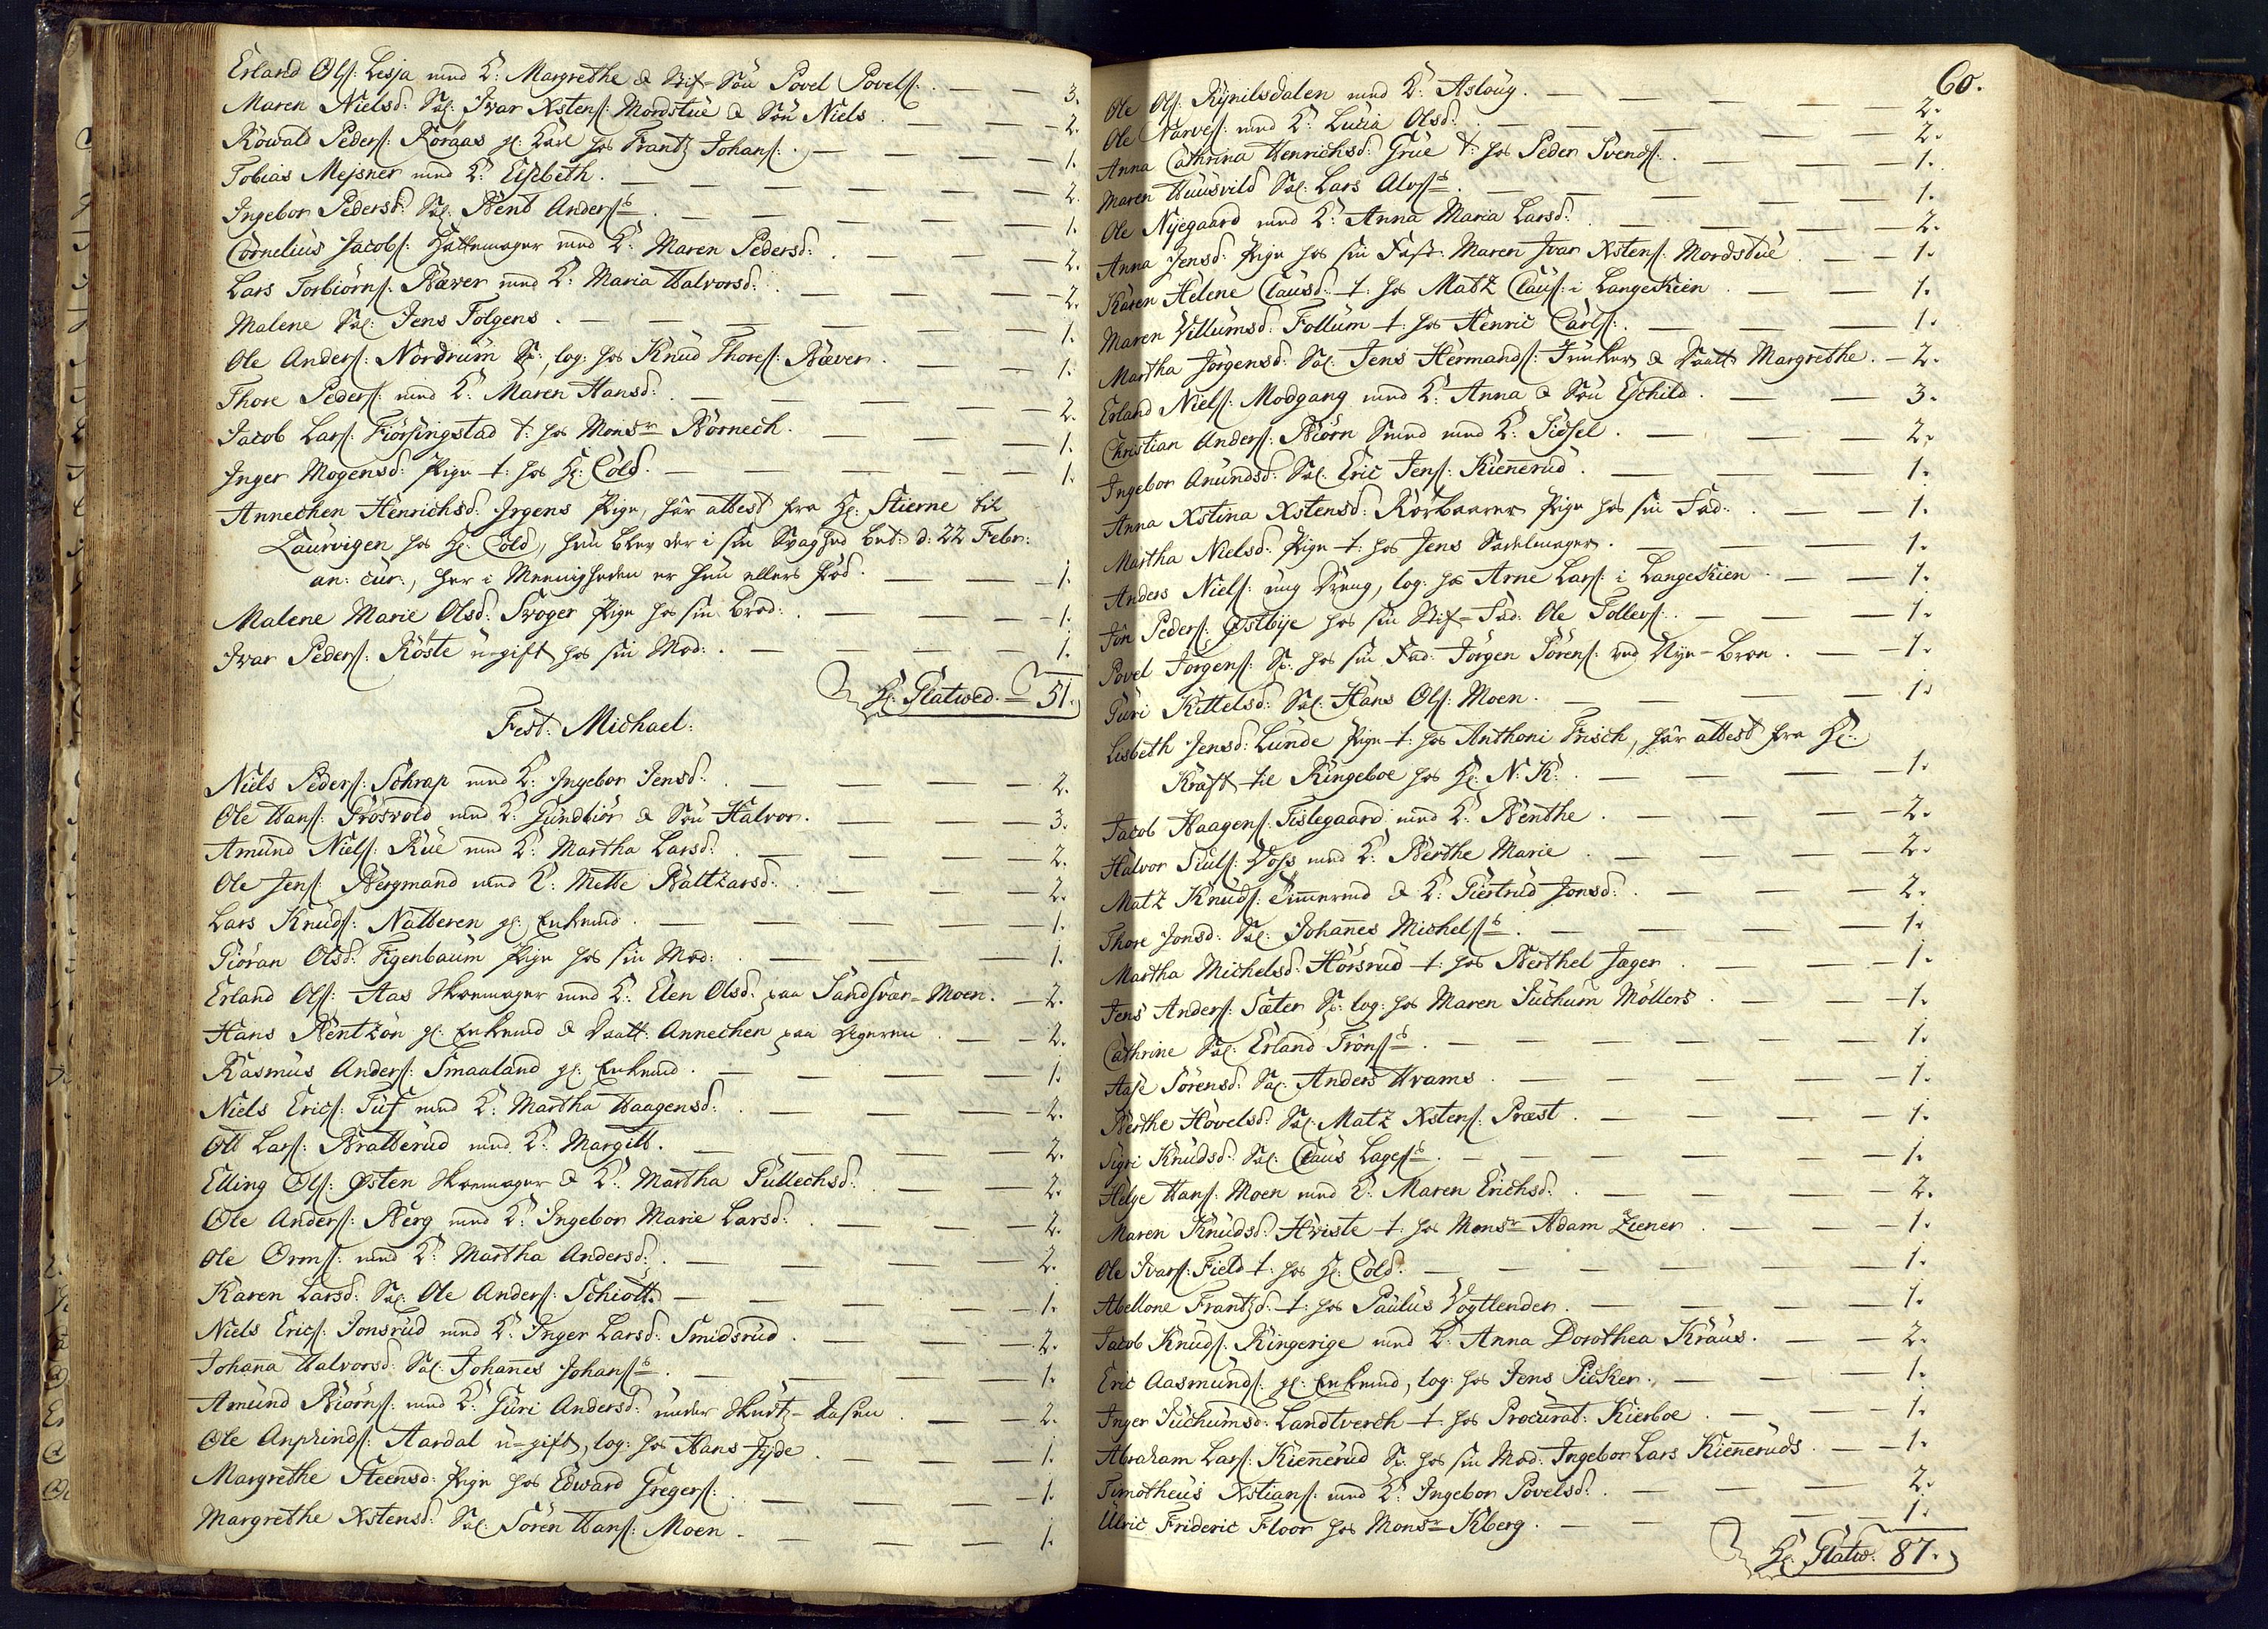 Erland Ols: Lesja med K: Margrethe & Stif-Søn Povel Povels: . — — 3.
Maren Nielsd: Sal: Ivar Xstens: Mordstue & Søn Niels . — — 2.
Rowald Peders: Røraas gl: Karl hos Frantz Johans: . — — 1.
Tobias Mejsner med K: Elisbeth . — — 2.
Ingebor Pedersd: Sal: Bent Anders: . — — 1.
Cornelius Jacobs: Hattemager med K: Maren Pedersd: . — — 2.
Lars Torbiørns: Bæver med K: Maria Halvorsd: . — — 2.
Malene Sal: Jens Følgens . — — 1.
Ole Anders: Nordrum S:, log: hos Knud Thores: Bæver . — — 1.
Thore Peders: med K: Maren Hansd: . — — 2.
Jacob Lars: Fiørsingstad t: hos Monsr Børnech . — — 1.
Inger Mogensd: Pige t: hos Hr: Cold . — — 1.
Annechen Henrichsd: Irgens Pige, har attest fra Hr: Stierne til
Laurvigen hos Hr: Cold, hun blev der i sin Svaghed bet: d: 22 Febr:
an: cur:, her i Meenigheden er hun ellers fød . — — 1.
Malene Marie Olsd: Svoger Pige hos sin Brod: . — — 1.
Ivar Peders: Røste u-gift hos sin Mod: . — — 1.
Hr: Platwed. — 51.
Fest: Michael:
Niels Peders: Schrap med K: Ingebor Jensd: . — — 2.
Ole Hans: Grosvold med K: Gundbiør & Søn Halvor . — — 3.
Amund Niels: Rue med K: Martha Larsd: . — — 2.
Ole Jens: Bergmand med K: Mette Baltzarsd: . — — 2.
Lars Knuds: Natteren gl: Enkemd . — — 1.
Giøran Olsd: Figenbaum Pige hos sin Mod: . — — 1.
Erland Ols: Aas Skoemager med K: Elen Olsd: paa Sandsvær-Moen . — 2.
Hans Bentzon gl: Enkemd & Daatt: Annechen paa Ageren . — — 2.
Rasmus Anders: Smaaland gl: Enkemd . — — 1.
Niels Erics: Tuf med K: Martha Haagensd: . — — 2.
Ott Lars: Bratterud med K: Margitt . — — 2.
Elling Ols: Østen Skoemager & K: Martha Gullechsd: . — — 2.
Ole Anders: Berg med K: Ingebor Marie Larsd: . — — 2.
Ole Orms: med K: Martha Andersd: . — — 2.
Karen Larsd: Sal: Ole Anders: Schiøtt . — — 1.
Niels Erics: Jonsrud med K: Inger Larsd: Smidsrud . — — 2.
Johana Halvorsd: Sal: Johanes Johans: . — — 1.
Amund Biørns: med K: Guri Andersd: under Skurtz-Aasen . — — 2.
Ole Anphinds: Aardal u-gift, log: hos Hans Jyde . — — 1.
Margrethe Steensd: Pige hos Edward Gregers: . — — 1.
Margrethe Xstensd: Sal: Søren Hans: Moen . — — 1.
60.
Ole Ols: Rynilsdalen med K: Aslaug . — — 2.
Ole Narves: med K: Lucia Olsd: . — — 2.
Anna Cathrina Henrichsd: Grue t: hos Peder Svends: . — — 1.
Maren Huusvild Sal: Lars Alvs: . — — 1.
Ole Nyegaard med K: Anna Maria Larsd: . — — 2.
Anna Jensd: Pige hos sin Fast: Maren Ivar Xstens: Mordstue . — — 1.
Karen Helene Clausd: t: hos Matz Claus: i Langeskien . — — 1.
Maren Villumsd: Follum t: hos Henric Carls: . — — 1.
Martha Jørgensd: Sal: Jens Hermands: Junker & Daatt: Margrethe . — 2.
Erland Niels: Modgang med K: Anna & Søn Eschild . — — 3.
Christian Anders: Biørn Smed med K: Sidsel . — — 2.
Ingebor Amundsd: Sal: Eric Jens: Kienerud . — — 1.
Anna Xstina Xstensd: Rørbaarer Pige hos sin Fad: . — — 1.
Martha Nielsd: Pige t: hos Jens Sadelmager . — — 1.
Anders Niels: ung Dreng, log: hos Arne Lars: i Langeskien . — — 1.
Jøn Peders: Østbye hos sin Stif-Fad: Ole Tollevs: . — — 1.
Povel Jørgens: S: hos sin Fad: Jørgen Sørens: ved Nye-Broe . — — 1.
Guri Kittelsd: Sal: Hans Ols: Moen . — — 1.
Lisbeth Jensd: Lunde Pige t: hos Anthoni Frisch, har attest fra Hr:
Kraft til Ringeboe hos Hr: N: K: . — — 1.
Jacob Haagens: Tislegaard med K: Benthe . — — 2.
Halvor Siuls: Voss med K: Berthe Marie . — — 2.
Matz Knuds: Timermd & K: Giertrud Jonsd: . — — 2.
Thore Jonsd: Sal: Johanes Michels: . — — 1.
Martha Michelsd: Horsrud t: hos Berthel Jæger . — — 1.
Jens Anders: Sæter S: log: hos Maren Juchum Møllers . — — 1.
Cathrine Sal: Erland Trøns: . — — 1.
Aase Sørensd: Sal: Anders Hrams . — — 1.
Berthe Hovelsd: Sal: Matz Xstens: Præst . — — 1.
Sigri Knudsd: Sal: Claus Lages: . — — 1.
Helge Hans: Moen med K: Maren Erichsd: . — — 2.
Maren Knudsd: Hviste t: hos Monsr Adam Ziener . — — 1.
Ole Ivars: Field t: hos Hr: Cold . — — 1.
Abellone Frantzd: t: hos Paulus Vogtlender . — — 1.
Jacob Knuds: Ringerige med K: Anna Dorothea Kraus . — — 2.
Eric Aasmunds: gl: Enkemd, log: hos Jens Picker . — — 1.
Inger Juchumsd: Landtverch t: hos Procurat: Kierboe . — — 1.
Abraham Lars: Kienerud S: hos sin Mod: Ingebor Lars Kieneruds . — — 1.
Timotheus Xstians: med K: Ingebor Povelsd: . — — 2.
Ulric Frideric Floor hos Monsr Kberg . — — 1.
Hr: Platw: 87.